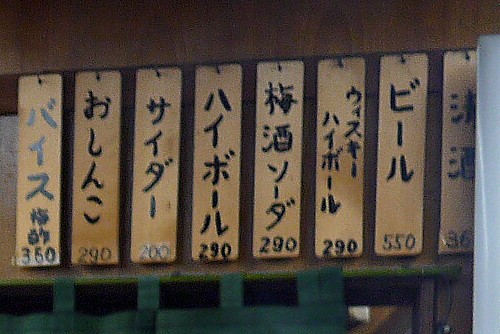 清酒
36
ビール
550
ウィスキー
ハイボール
290
梅酒ソーダ
290
ハイボール
290
サイダー
200
おしんこ
290
バイス
梅酢
360